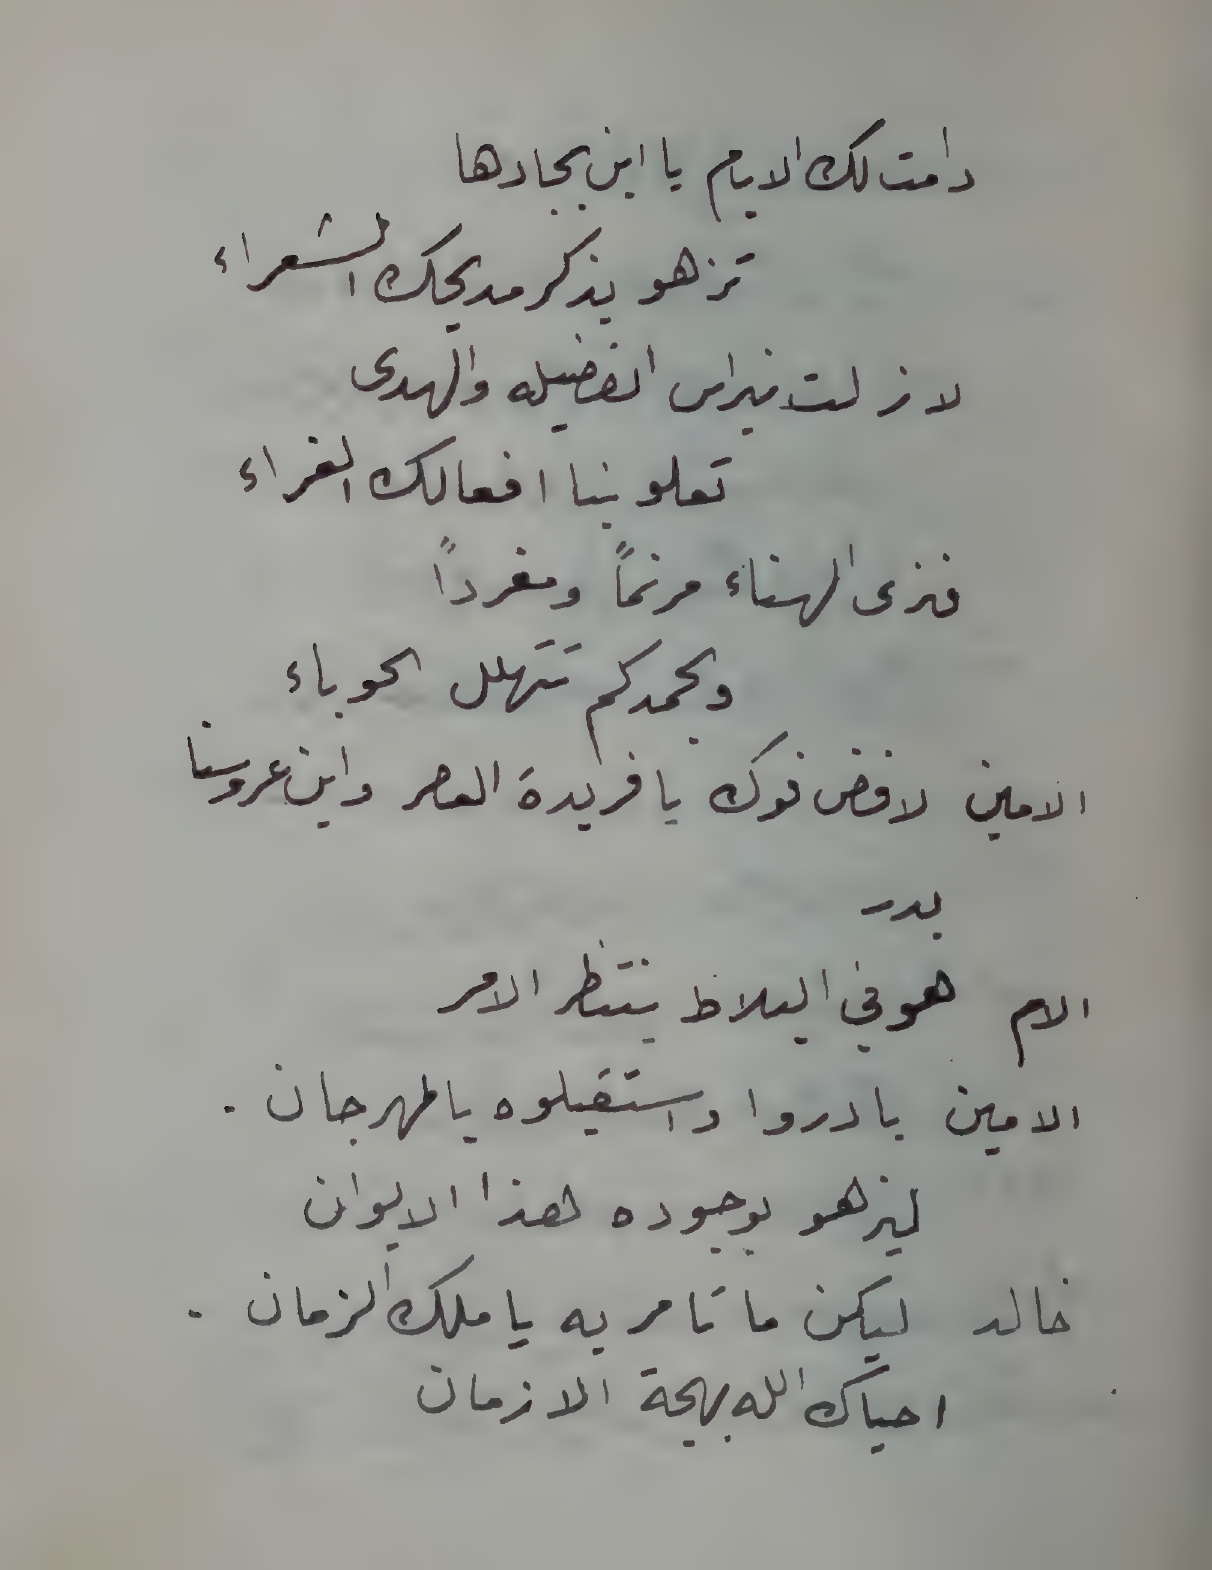 دامت لك الايام يا ابن بجادها
تزهو بذكر مديحك الشعراء
لا زلت نبراس الفضيله والهدى
تعلو بنا افعالك الغراء
فنرى الهناء مرنماً ومغرداً
وبحمدكم تتهلل الحوباء
الامين لا فض فوك يا فريدة العصر واين عروسنا
بدر
الام هو في البلاط ينتظر الامر
الامين بادروا واستقبلوه بالمهرجان .
ليزهو بوجوده هذا الايوان
خالد ليكن ما تامر به يا ملك الزمان .
احياك الله بهجة الازمان